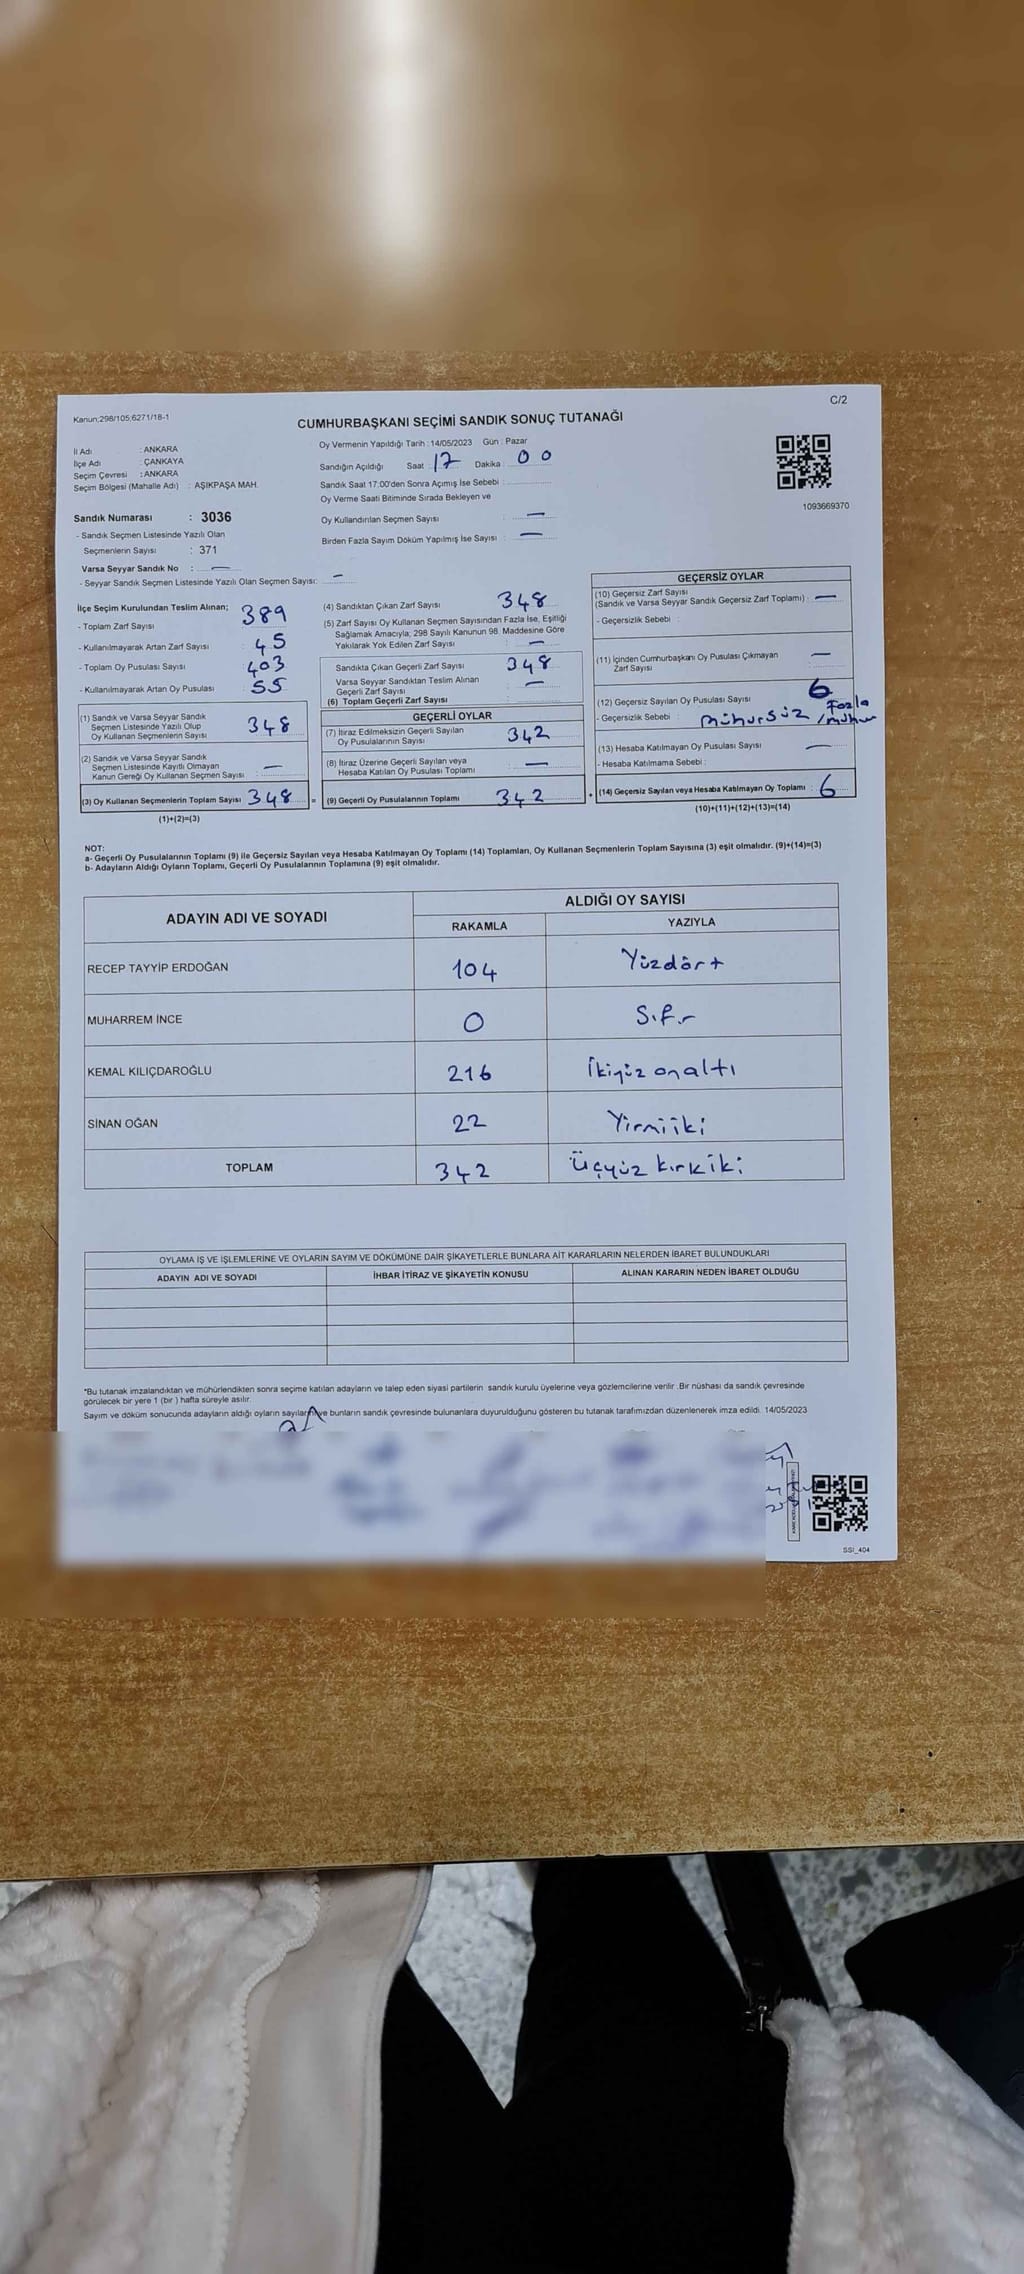 Kanun:298/105;6271/18-1
C/2
CUMHURBAŞKANI SEÇİMİ SANDIK SONUÇ TUTANAĞI
İl Adı : ANKARA
İlçe Adı : ÇANKAYA
Seçim Çevresi : ANKARA
Seçim Bölgesi (Mahalle Adı) : AŞIKPAŞA MAH.
Oy Vermenin Yapıldığı Tarih : 14/05/2023 Gün : Pazar
Sandığın Açıldığı Saat : 17 Dakika : 00
Sandık Saat 17:00'den Sonra Açımış İse Sebebi :
Oy Verme Saati Bitiminde Sırada Bekleyen ve
Oy Kullandırılan Seçmen Sayısı : —
Birden Fazla Sayım Döküm Yapılmış İse Sayısı : —
1093669370
Sandık Numarası : 3036
- Sandık Seçmen Listesinde Yazılı Olan
Seçmenlerin Sayısı : 371
Varsa Seyyar Sandık No : —
- Seyyar Sandık Seçmen Listesinde Yazılı Olan Seçmen Sayısı: —
İlçe Seçim Kurulundan Teslim Alınan;
- Toplam Zarf Sayısı 389
- Kullanılmayarak Artan Zarf Sayısı : 45
- Toplam Oy Pusulası Sayısı 403
- Kullanılmayarak Artan Oy Pusulası : 55
(1) Sandık ve Varsa Seyyar Sandık
Seçmen Listesinde Yazılı Olup
Oy Kullanan Seçmenlerin Sayısı 348
(2) Sandık ve Varsa Seyyar Sandık
Seçmen Listesinde Kayıtlı Olmayan
Kanun Gereği Oy Kullanan Seçmen Sayısı : —
(3) Oy Kullanan Seçmenlerin Toplam Sayısı 348 =
(1)+(2)=(3)
(4) Sandıktan Çıkan Zarf Sayısı 348
(5) Zarf Sayısı Oy Kullanan Seçmen Sayısından Fazla İse, Eşitliği
Sağlamak Amacıyla; 298 Sayılı Kanunun 98. Maddesine Göre
Yakılarak Yok Edilen Zarf Sayısı : —
Sandıkta Çıkan Geçerli Zarf Sayısı 348
Varsa Seyyar Sandıktan Teslim Alınan
Geçerli Zarf Sayısı : —
(6) Toplam Geçerli Zarf Sayısı :
GEÇERLİ OYLAR
(7) İtiraz Edilmeksizin Geçerli Sayılan
Oy Pusulalarının Sayısı : 342
(8) İtiraz Üzerine Geçerli Sayılan veya
Hesaba Katılan Oy Pusulası Toplamı : —
(9) Geçerli Oy Pusulalarının Toplamı 342 +
GEÇERSİZ OYLAR
(10) Geçersiz Zarf Sayısı
(Sandık ve Varsa Seyyar Sandık Geçersiz Zarf Toplamı) : —
- Geçersizlik Sebebi :
(11) İçinden Cumhurbaşkanı Oy Pusulası Çıkmayan
Zarf Sayısı : —
(12) Geçersiz Sayılan Oy Pusulası Sayısı 6
- Geçersizlik Sebebi : mühürsüz / Fazla mühür
(13) Hesaba Katılmayan Oy Pusulası Sayısı : —
- Hesaba Katılmama Sebebi :
(14) Geçersiz Sayılan veya Hesaba Katılmayan Oy Toplamı : 6
(10)+(11)+(12)+(13)=(14)
NOT:
a- Geçerli Oy Pusulalarının Toplamı (9) ile Geçersiz Sayılan veya Hesaba Katılmayan Oy Toplamı (14) Toplamları, Oy Kullanan Seçmenlerin Toplam Sayısına (3) eşit olmalıdır. (9)+(14)=(3)
b- Adayların Aldığı Oyların Toplamı, Geçerli Oy Pusulalarının Toplamına (9) eşit olmalıdır.
ADAYIN ADI VE SOYADI
ALDIĞI OY SAYISI
RAKAMLA YAZIYLA
RECEP TAYYİP ERDOĞAN 104 Yüzdört
MUHARREM İNCE 0 Sıfır
KEMAL KILIÇDAROĞLU 216 İkiyüz onaltı
SİNAN OĞAN 22 Yirmiiki
TOPLAM 342 Üçyüz kırkiki
OYLAMA İŞ VE İŞLEMLERİNE VE OYLARIN SAYIM VE DÖKÜMÜNE DAİR ŞİKAYETLERLE BUNLARA AİT KARARLARIN NELERDEN İBARET BULUNDUKLARI
ADAYIN ADI VE SOYADI İHBAR İTİRAZ VE ŞİKAYETİN KONUSU ALINAN KARARIN NEDEN İBARET OLDUĞU
*Bu tutanak imzalandıktan ve mühürlendikten sonra seçime katılan adayların ve talep eden siyasi partilerin sandık kurulu üyelerine veya gözlemcilerine verilir .Bir nüshası da sandık çevresinde
görülecek bir yere 1 (bir ) hafta süreyle asılır.
Sayım ve döküm sonucunda adayların aldığı oyların sayıları ve bunların sandık çevresinde bulunanlara duyurulduğunu gösteren bu tutanak tarafımızdan düzenlenerek imza edildi. 14/05/2023
SSİ_404